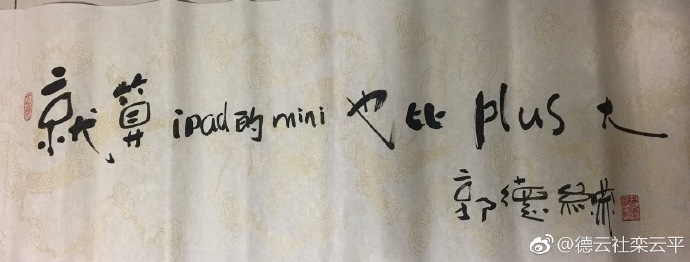 就算ipad的mini也比plus大
郭德纲
@德云社栾云平